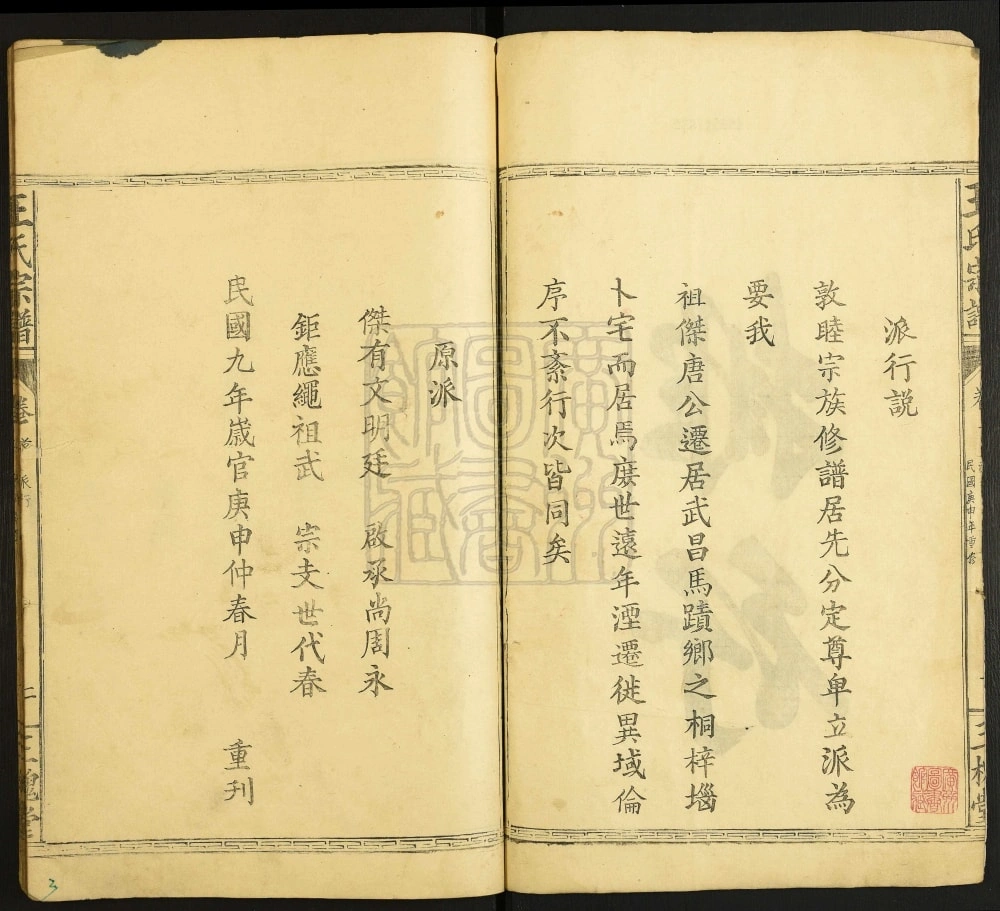 王氏宗譜
民國庚申年重
三槐堂
派行説
敦睦宗族修譜居先分定尊卑立派為
要我
祖傑唐公遷居武昌馬蹟鄉之桐梓堖
卜宅而居焉庻世遠年湮遷徙異域倫
序不紊行次皆同矣
原派
傑有文明廷 啟承尚周永
鉅應繩祖武 宗支世代春
民國九年歲官庚申仲春月 重刋
王氏宗譜
卷首 派行
二
三槐堂
3